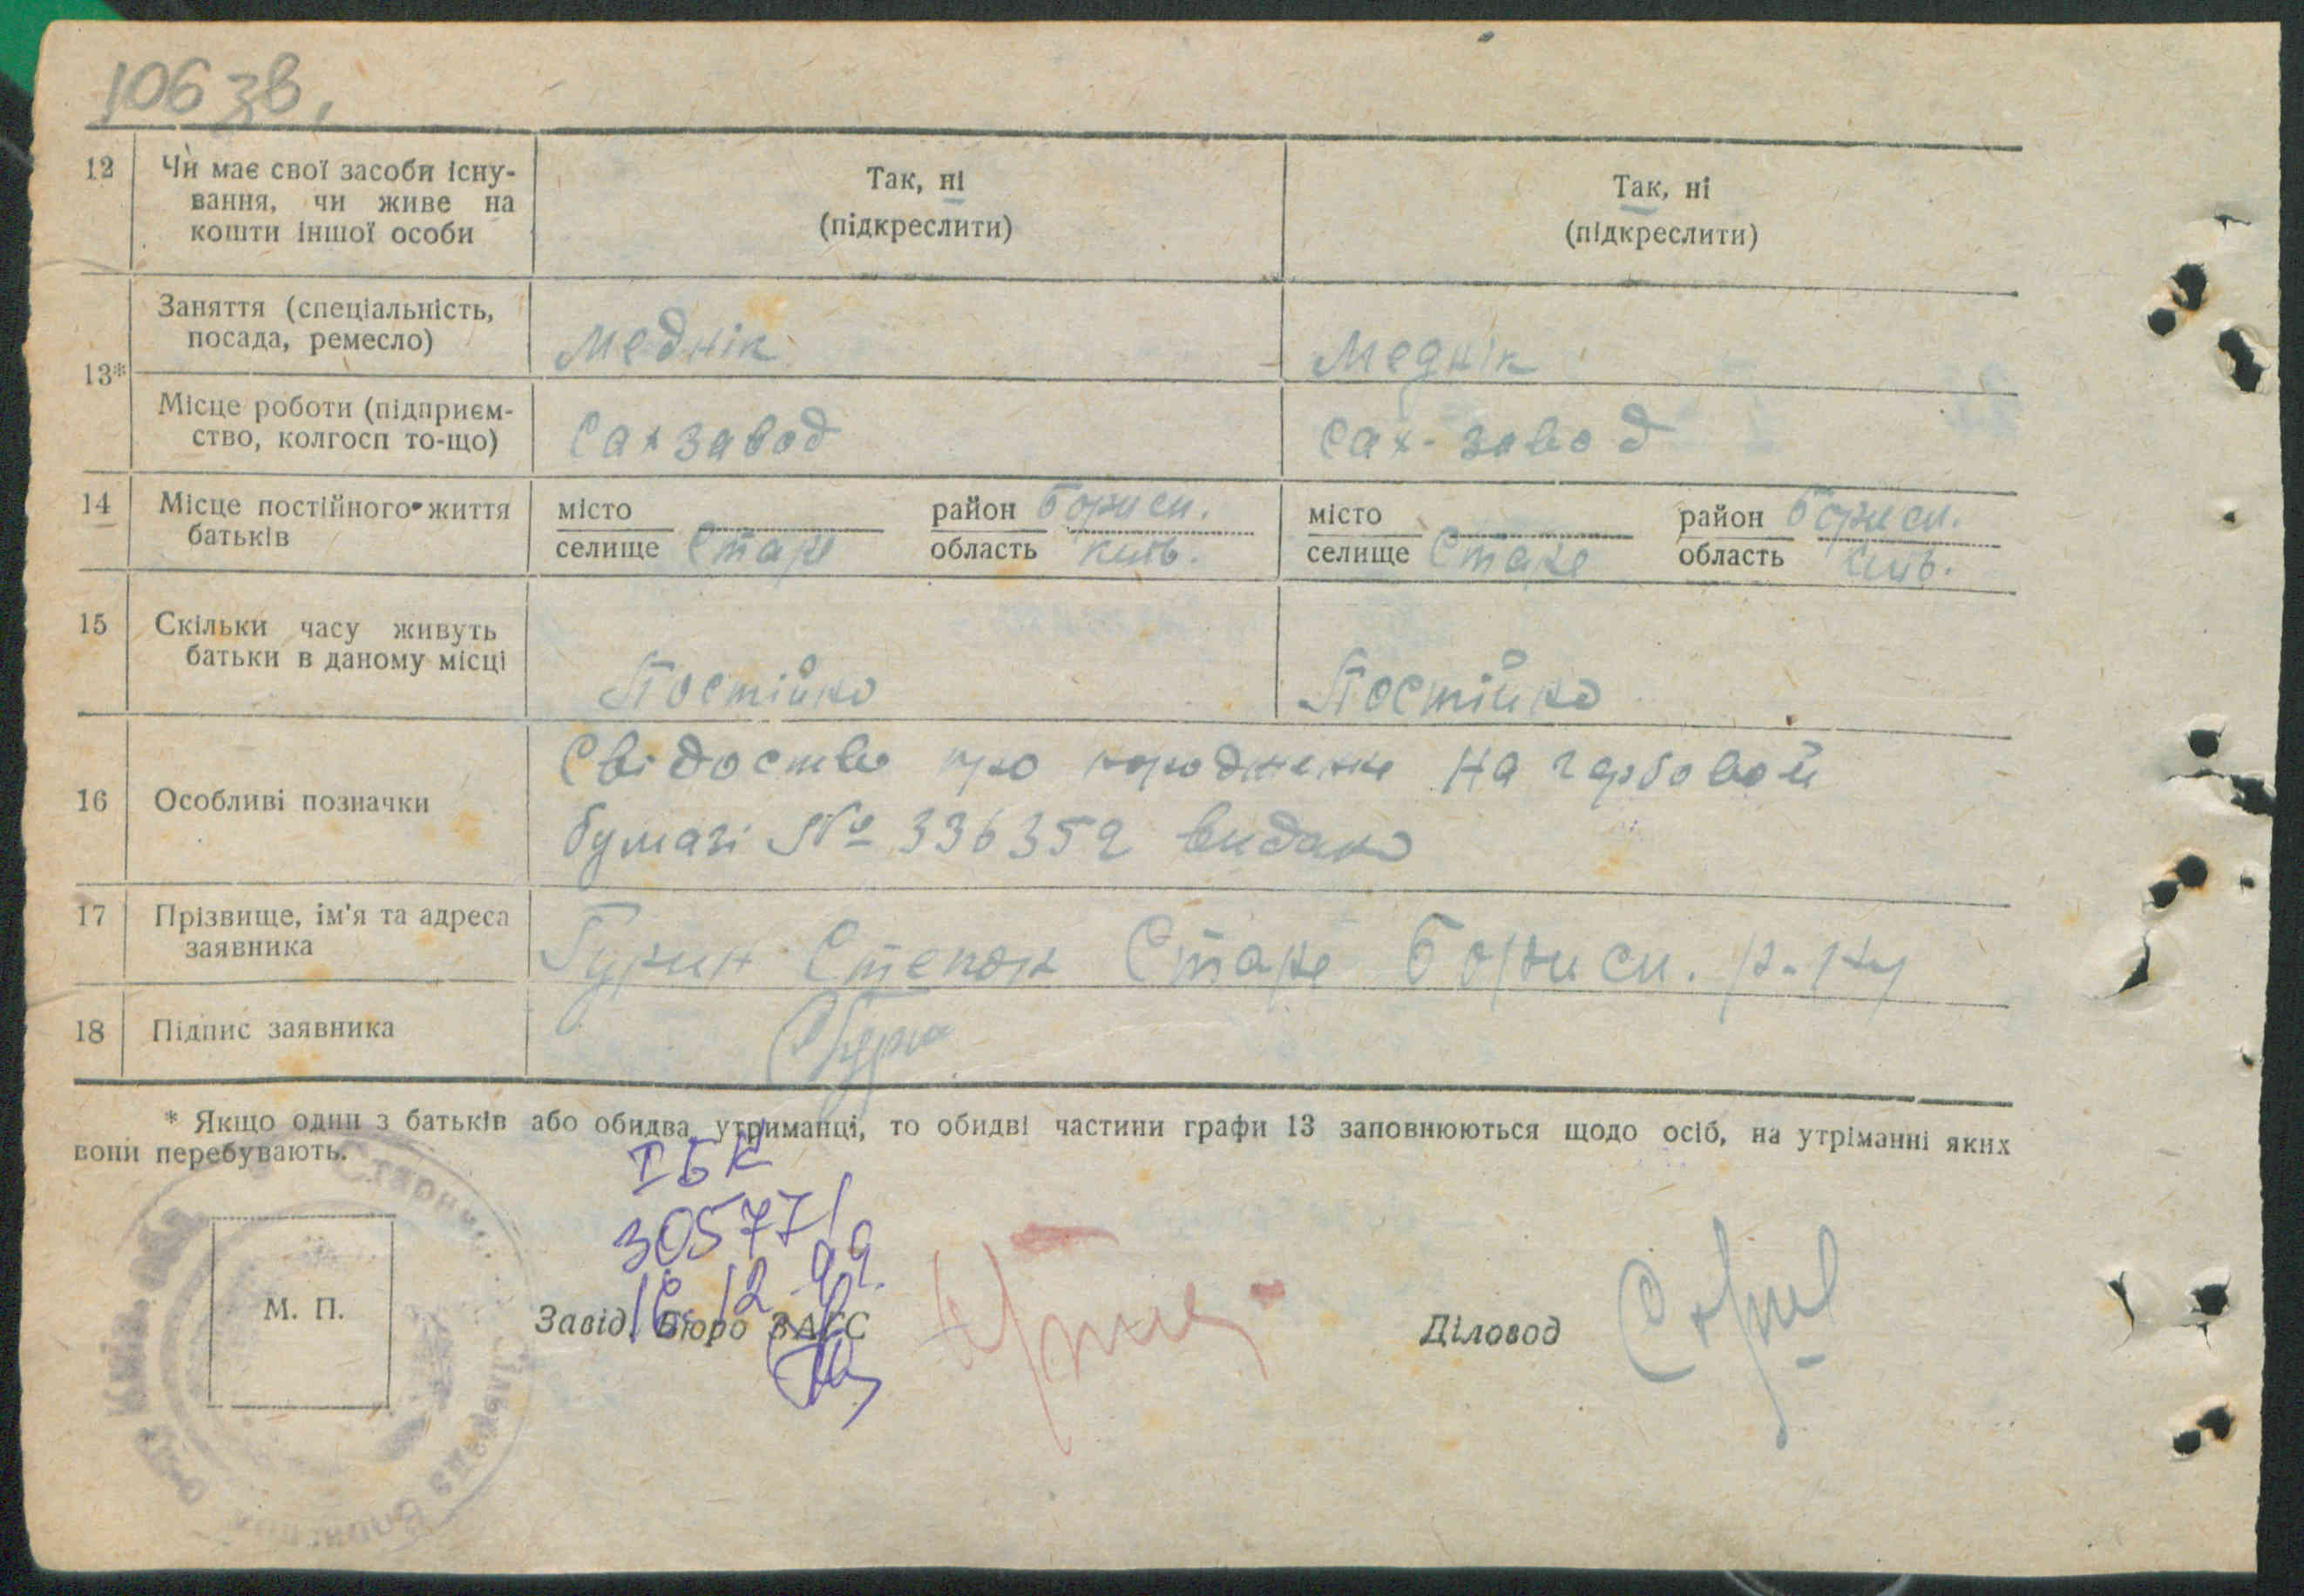 106 зв.
12 Чи має свої засоби існу-
вання, чи живе на
кошти іншої особи
Так, ні
(підкреслити)
Так, ні
(підкреслити)
13*
Заняття (спеціальність,
посада, ремесло)
Меднік
Меднік
Місце роботи (підприєм-
ство, колгосп то-що)
Сахзавод
Сах-завод
14 Місце постійного життя
батьків
місто район Борисп.
селище Старе область Київ.
місто район Борисп.
селище Старе область Київ.
15 Скільки часу живуть
батьки в даному місці
Постійно
Постійно
16 Особливі позначки
Свідоство про народження на гербовой
бумагі № 336352 видано
17 Прізвище, ім'я та адреса
заявника
Гурин Степан Старе Борисп. р-ну
18 Підпис заявника
* Якщо один з батьків або обидва утриманці, то обидві частини графи 13 заповнюються щодо осіб, на утріманні яких
вони перебувають.
ІБК
305771
16.12.99.
М. П.
Завід. Бюро ЗАГС
Діловод